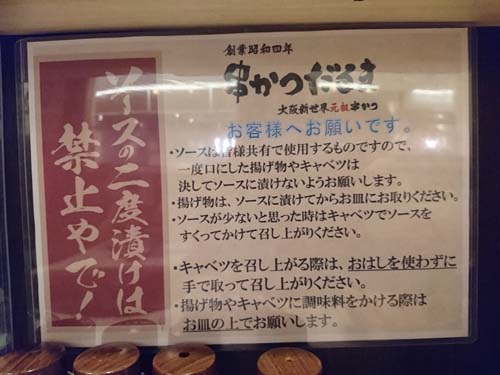 ソースの二度漬けは
禁止やで！
創業昭和四年
串かつだるま
大阪新世界元祖串かつ
お客様へお願いです。
・ソースは皆様共有で使用するものですので、
一度口にした揚げ物やキャベツは
決してソースに漬けないようお願いします。
・揚げ物は、ソースに漬けてからお皿にお取りください。
・ソースが少ないと思った時はキャベツでソースを
すくってかけて召し上がりください。
・キャベツを召し上がる際は、おはしを使わずに
手で取って召し上がりください。
・揚げ物やキャベツに調味料をかける際は
お皿の上でお願いします。